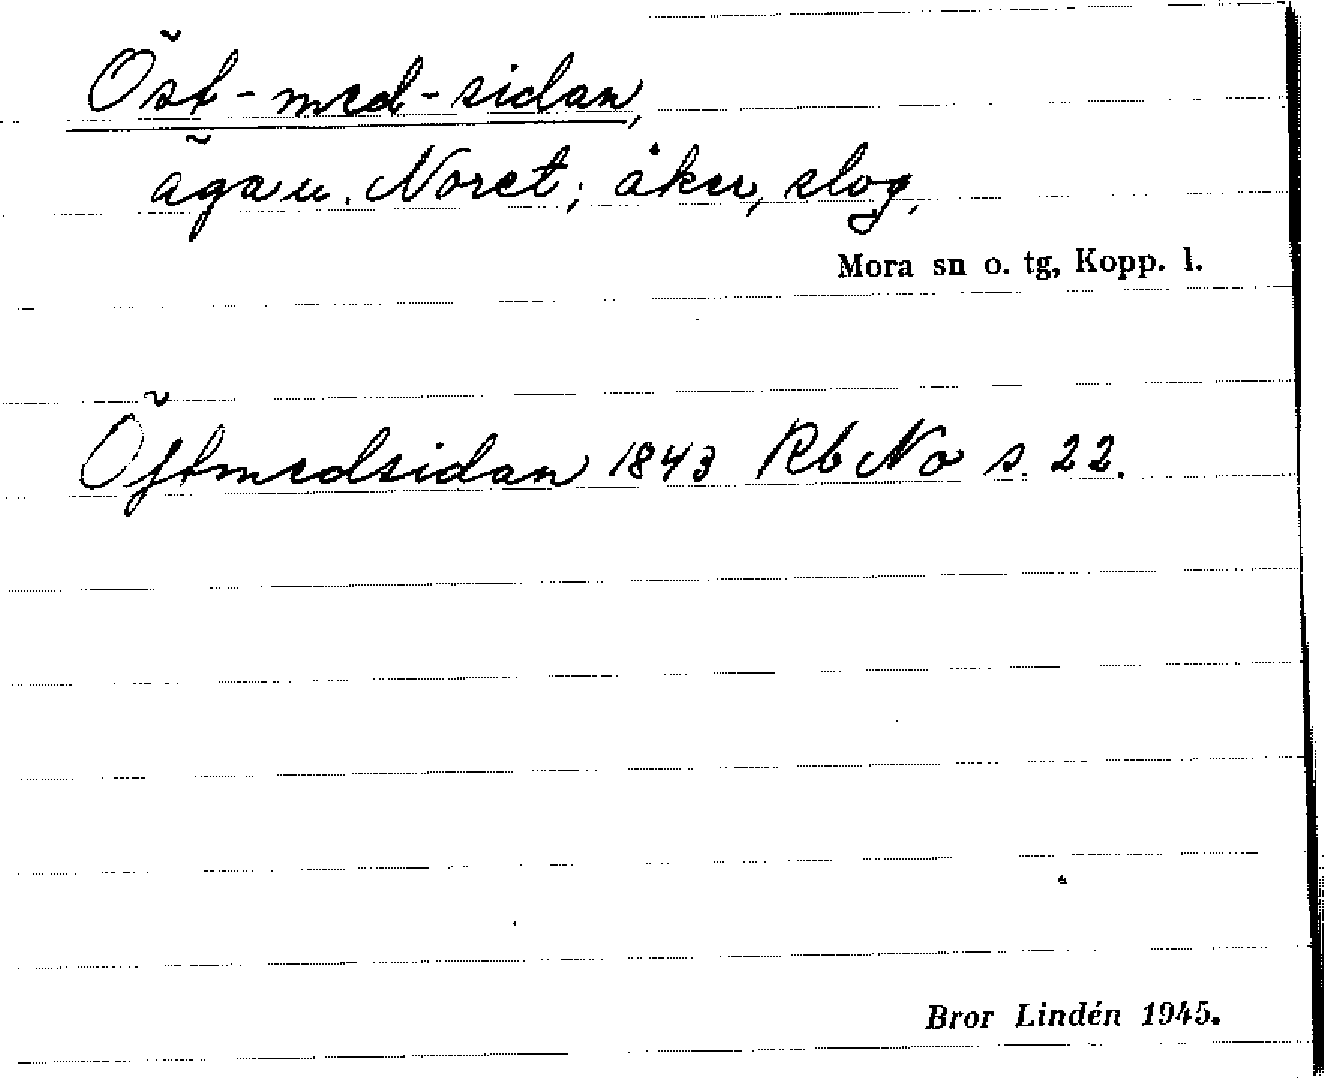 Öst-med-sidan,
äga u. Noret; åker, slog,
Mora sn o. tg, Kopp. l.
Öſtmedsidan 1843 Rb No s. 22.
Bror Lindén 1945.